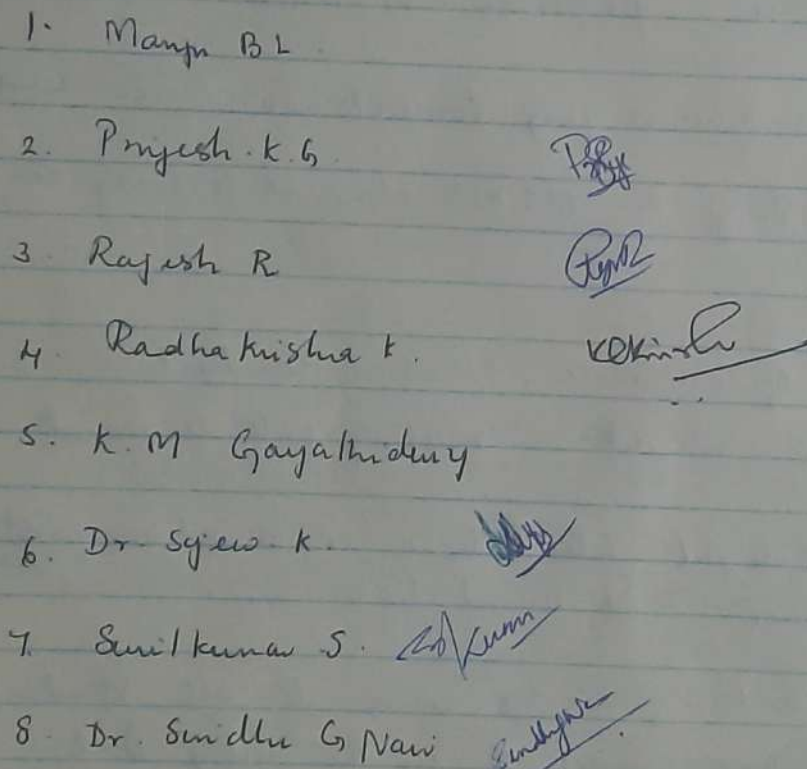 1. Manju B L
2. Prijesh. K. G.
3 Rajesh R
4. Radhakrishna K.
5. K. M Gayathridevy
6. Dr K.
7. Sunilkumar S.
8. Dr. Sindhu G Nair